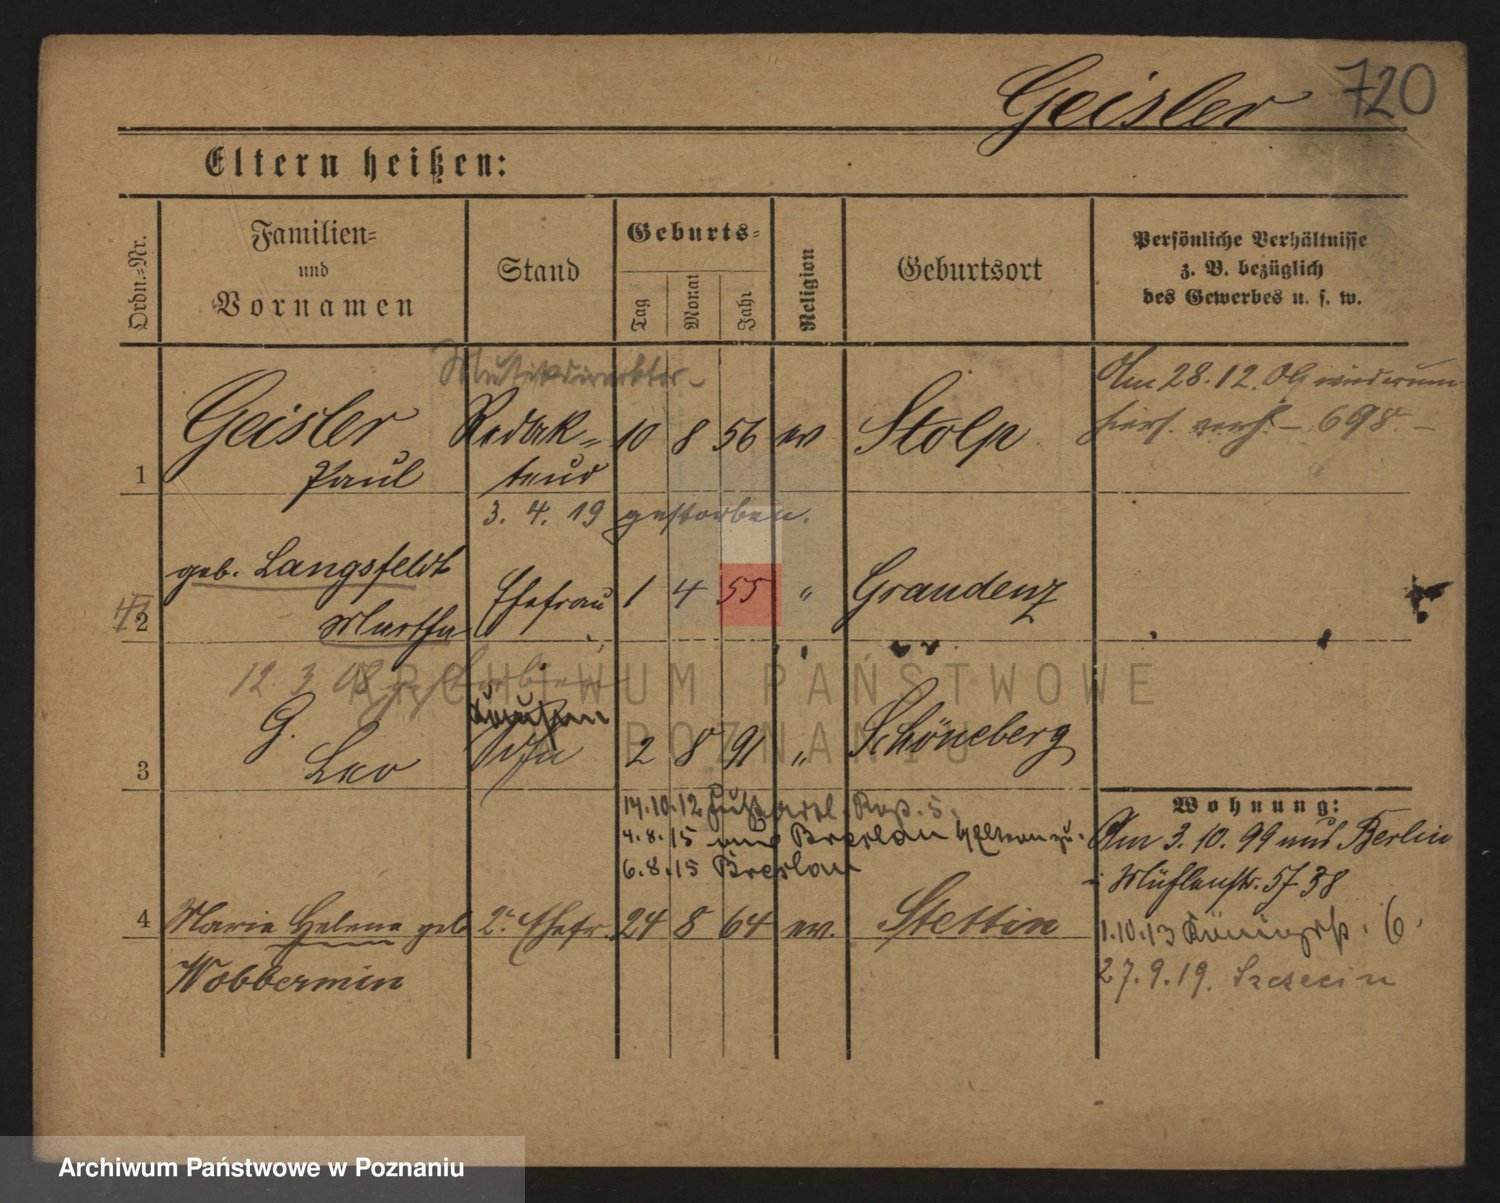 Geisler 720
Eltern heißen:
Ordn.-Nr.
Familien-
und
Vornamen
Stand
Geburts-
Tag
Monat
Jahr
Religion
Geburtsort
Persönliche Verhältnisse
z. B. bezüglich
des Gewerbes u. s. w.
Musikdirektor
1 Geisler Redak- 10 8 56 ev Stolp
Paul teur
Am 28.12. 08 wiederum
verh. – 698. –
3. 4. 19 gestorben.
geb. Langsfeldt
2 Martha Ehefrau 1 4 55 " Graudenz
12 3 08 gestorben
G.
3 Leo Sohn 2 8 91 " Schöneberg
14.10.12 5.
4.8.15 Breslau
6.8.15 Breslau
Wohnung:
Am 3. 10. 99 aus Berlin
Mühlenstr. 57 38
4 Maria Helene geb 2te Ehefr. 24 8 64 ev. Stettin
Wobbermin
1.10.13 6.
27.9.19. Szczecin
ARCHIWUM PAŃSTWOWE
POZNANIU
Archiwum Państwowe w Poznaniu